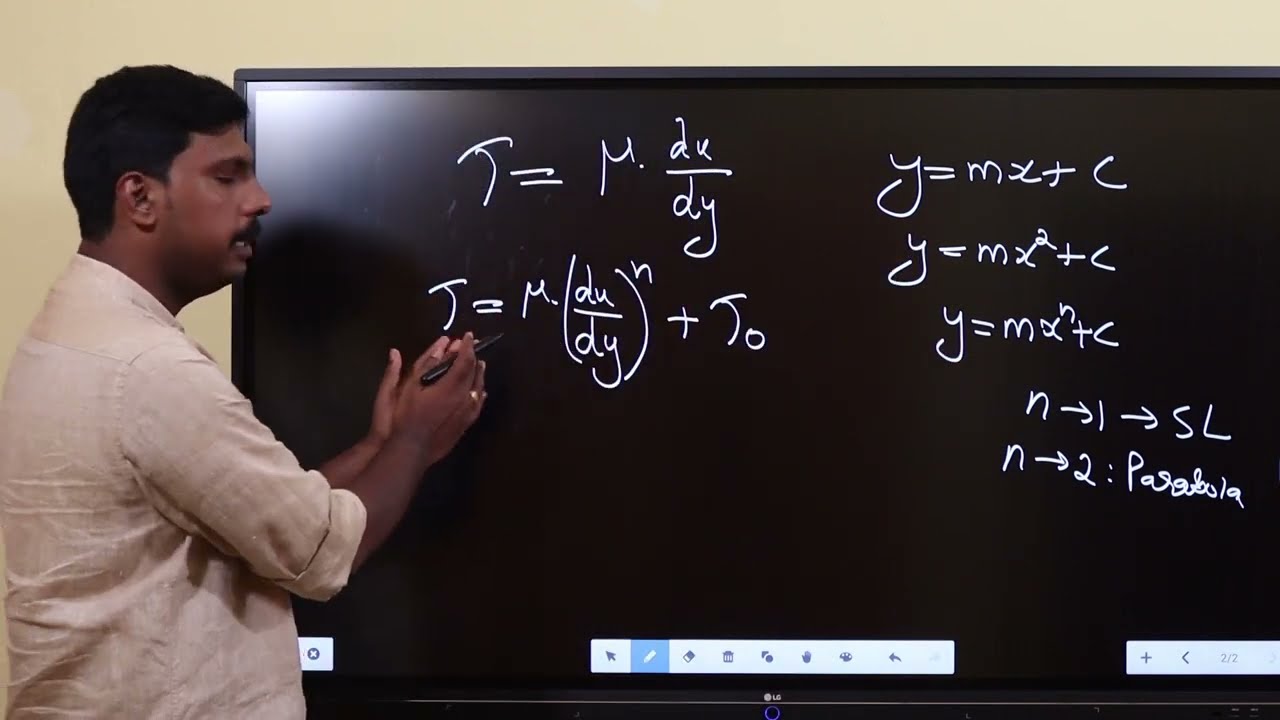 τ = μ. du/dy
τ = μ. (du/dy)ⁿ + τ₀
y = mx + c
y = mx² + c
y = mxⁿ + c
n → 1 → SL
n → 2 : Parabola
2/2
LG